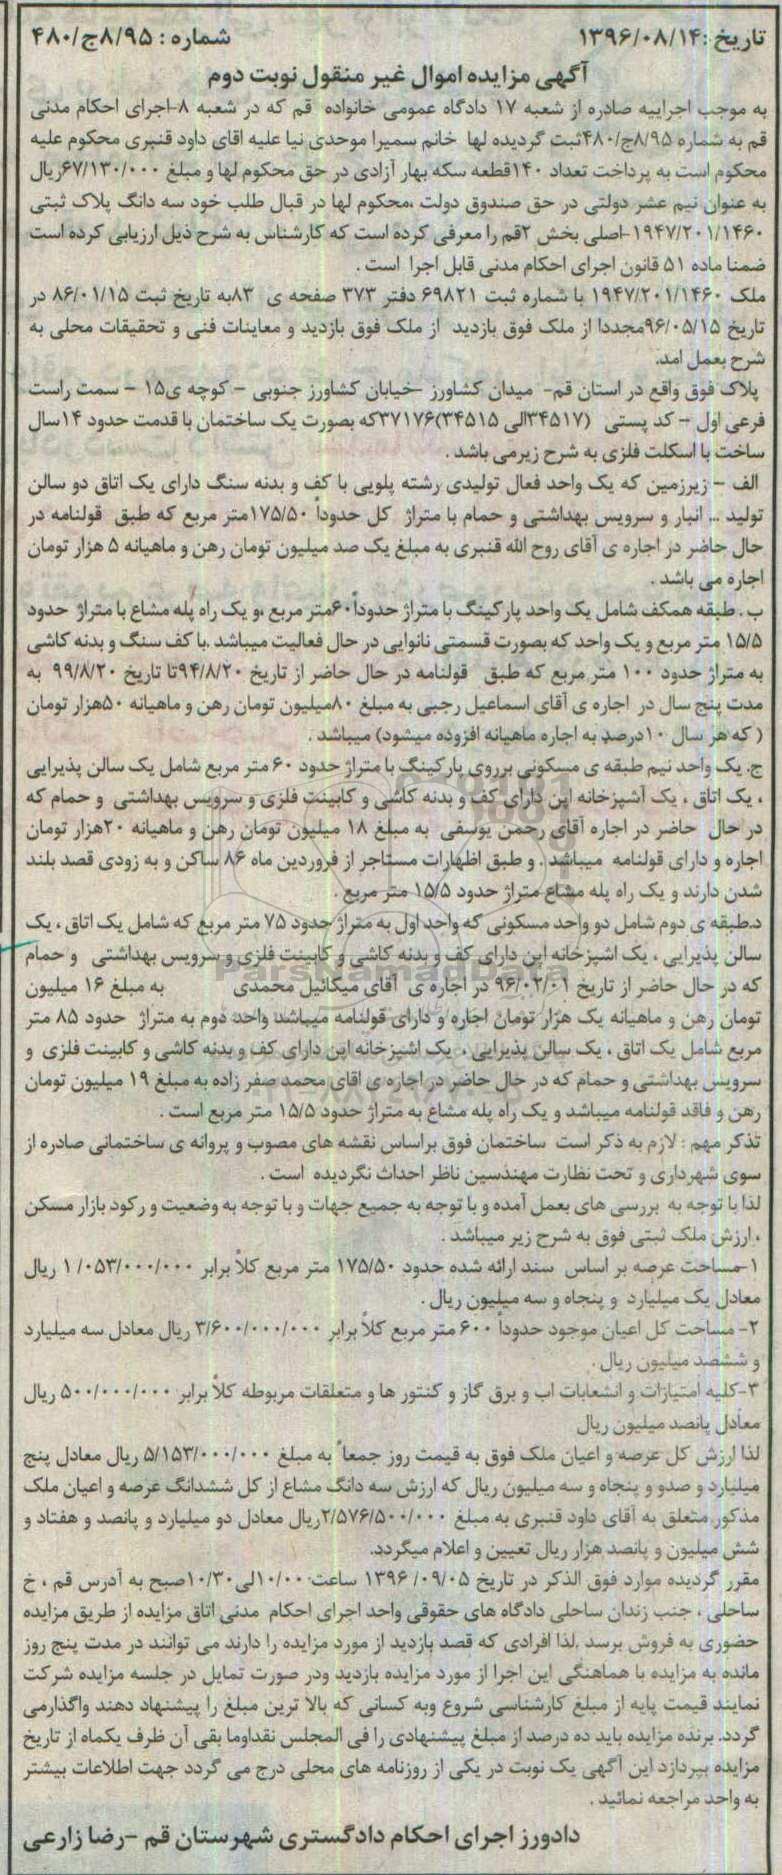 تاریخ :۱۳۹۶/۰۸/۱۴ شماره : ۸/۹۵ج/۴۸۰
آگهی مزایده اموال غیر منقول نوبت دوم
به موجب اجراییه صادره از شعبه ۱۷ دادگاه عمومی خانواده قم که در شعبه ۸-اجرای احکام مدنی
قم به شماره ۸/۹۵ج/۴۸۰ثبت گردیده لها خانم سمیرا موحدی نیا علیه اقای داود قنبری محکوم علیه
محکوم است به پرداخت تعداد ۱۴۰قطعه سکه بهار آزادی در حق محکوم لها و مبلغ ۶۷/۱۳۰/۰۰۰ریال
به عنوان نیم عشر دولتی در حق صندوق دولت ،محکوم لها در قبال طلب خود سه دانگ پلاک ثبتی
۱۹۴۷/۲۰۱/۱۴۶۰-اصلی بخش ۲قم را معرفی کرده است که کارشناس به شرح ذیل ارزیابی کرده است
ضمنا ماده ۵۱ قانون اجرای احکام مدنی قابل اجرا است .
ملک ۱۹۴۷/۲۰۱/۱۴۶۰ با شماره ثبت ۶۹۸۲۱ دفتر ۳۷۳ صفحه ی ۸۳به تاریخ ثبت ۸۶/۰۱/۱۵ در
تاریخ ۹۶/۰۵/۱۵مجددا از ملک فوق بازدید از ملک فوق بازدید و معاینات فنی و تحقیقات محلی به
شرح بعمل امد.
پلاک فوق واقع در استان قم- میدان کشاورز -خیابان کشاورز جنوبی – کوچه ی۱۵ – سمت راست
فرعی اول – کد پستی (۳۴۵۱۷الی ۳۴۵۱۵)۳۷۱۷۶که بصورت یک ساختمان با قدمت حدود ۱۴سال
ساخت با اسکلت فلزی به شرح زیرمی باشد .
الف – زیرزمین که یک واحد فعال تولیدی رشته پلویی با کف و بدنه سنگ دارای یک اتاق دو سالن
تولید .. انبار و سرویس بهداشتی و حمام با متراژ کل حدوداً ۱۷۵/۵۰متر مربع که طبق قولنامه در
حال حاضر در اجاره ی آقای روح الله قنبری به مبلغ یک صد میلیون تومان رهن و ماهیانه ۵ هزار تومان
اجاره می باشد .
ب . طبقه همکف شامل یک واحد پارکینگ با متراژ حدوداً۶۰متر مربع ،و یک راه پله مشاع با متراژ حدود
۱۵/۵ متر مربع و یک واحد که بصورت قسمتی نانوایی در حال فعالیت میباشد .با کف سنگ و بدنه کاشی
به متراژ حدود ۱۰۰ متر مربع که طبق قولنامه در حال حاضر از تاریخ ۹۴/۸/۲۰تا تاریخ ۹۹/۸/۲۰ به
مدت پنج سال در اجاره ی آقای اسماعیل رجبی به مبلغ ۸۰میلیون تومان رهن و ماهیانه ۵۰هزار تومان
( که هر سال ۱۰درصد به اجاره ماهیانه افزوده میشود) میباشد .
ج. یک واحد نیم طبقه ی مسکونی برروی پارکینگ با متراژ حدود ۶۰ متر مربع شامل یک سالن پذیرایی
، یک اتاق ، یک آشپزخانه اپن دارای کف و بدنه کاشی و کابینت فلزی و سرویس بهداشتی و حمام که
در حال حاضر در اجاره آقای رحمن یوسفی به مبلغ ۱۸ میلیون تومان رهن و ماهیانه ۲۰هزار تومان
اجاره و دارای قولنامه میباشد . و طبق اظهارات مستاجر از فروردین ماه ۸۶ ساکن و به زودی قصد بلند
شدن دارند و یک راه پله مشاع متراژ حدود ۱۵/۵ متر مربع .
د.طبقه ی دوم شامل دو واحد مسکونی که واحد اول به متراژ حدود ۷۵ متر مربع که شامل یک اتاق ، یک
سالن پذیرایی ، یک اشپزخانه اپن دارای کف و بدنه کاشی و کابینت فلزی و سرویس بهداشتی و حمام
که در حال حاضر از تاریخ ۹۶/۰۲/۰۱ در اجاره ی آقای میکائیل محمدی به مبلغ ۱۶ میلیون
تومان رهن و ماهیانه یک هزار تومان اجاره و دارای قولنامه میباشد واحد دوم به متراژ حدود ۸۵ متر
مربع شامل یک اتاق ، یک سالن پذیرایی ، یک اشپزخانه اپن دارای کف و بدنه کاشی و کابینت فلزی و
سرویس بهداشتی و حمام که در حال حاضر در اجاره ی اقای محمد صفر زاده به مبلغ ۱۹ میلیون تومان
رهن و فاقد قولنامه میباشد و یک راه پله مشاع به متراژ حدود ۱۵/۵ متر مربع است .
تذکر مهم : لازم به ذکر است ساختمان فوق براساس نقشه های مصوب و پروانه ی ساختمانی صادره از
سوی شهرداری و تحت نظارت مهندسین ناظر احداث نگردیده است .
لذا با توجه به بررسی های بعمل آمده و با توجه به جمیع جهات و با توجه به وضعیت و رکود بازار مسکن
، ارزش ملک ثبتی فوق به شرح زیر میباشد .
۱-مساحت عرصه بر اساس سند ارائه شده حدود ۱۷۵/۵۰ متر مربع کلاً برابر ۱/۰۵۳/۰۰۰/۰۰۰ ریال
معادل یک میلیارد و پنجاه و سه میلیون ریال .
۲- مساحت کل اعیان موجود حدوداً ۶۰۰ متر مربع کلاً برابر ۳/۶۰۰/۰۰۰/۰۰۰ ریال معادل سه میلیارد
و ششصد میلیون ریال .
۳-کلیه امتیازات و انشعابات اب و برق گاز و کنتور ها و متعلقات مربوطه کلاً برابر ۵۰۰/۰۰۰/۰۰۰ ریال
معادل پانصد میلیون ریال
لذا ارزش کل عرصه و اعیان ملک فوق به قیمت روز جمعاً به مبلغ ۵/۱۵۳/۰۰۰/۰۰۰ ریال معادل پنج
میلیارد و صدو و پنجاه و سه میلیون ریال که ارزش سه دانگ مشاع از کل ششدانگ عرصه و اعیان ملک
مذکور متعلق به آقای داود قنبری به مبلغ ۲/۵۷۶/۵۰۰/۰۰۰ریال معادل دو میلیارد و پانصد و هفتاد و
شش میلیون و پانصد هزار ریال تعیین و اعلام میگردد.
مقرر گردیده موارد فوق الذکر در تاریخ ۱۳۹۶/۰۹/۰۵ ساعت ۱۰/۰۰الی۱۰/۳۰صبح به آدرس قم ، خ
ساحلی ، جنب زندان ساحلی دادگاه های حقوقی واحد اجرای احکام مدنی اتاق مزایده از طریق مزایده
حضوری به فروش برسد .لذا افرادی که قصد بازدید از مورد مزایده را دارند می توانند در مدت پنج روز
مانده به مزایده با هماهنگی این اجرا از مورد مزایده بازدید ودر صورت تمایل در جلسه مزایده شرکت
نمایند قیمت پایه از مبلغ کارشناسی شروع وبه کسانی که بالا ترین مبلغ را پیشنهاد دهند واگذارمی
گردد. برنده مزایده باید ده درصد از مبلغ پیشنهادی را فی المجلس نقداوما بقی آن ظرف یکماه از تاریخ
مزایده بپردازد این آگهی یک نوبت در یکی از روزنامه های محلی درج می گردد جهت اطلاعات بیشتر
به واحد مراجعه نمائید .
دادورز اجرای احکام دادگستری شهرستان قم –رضا زارعی
ParsNamadData